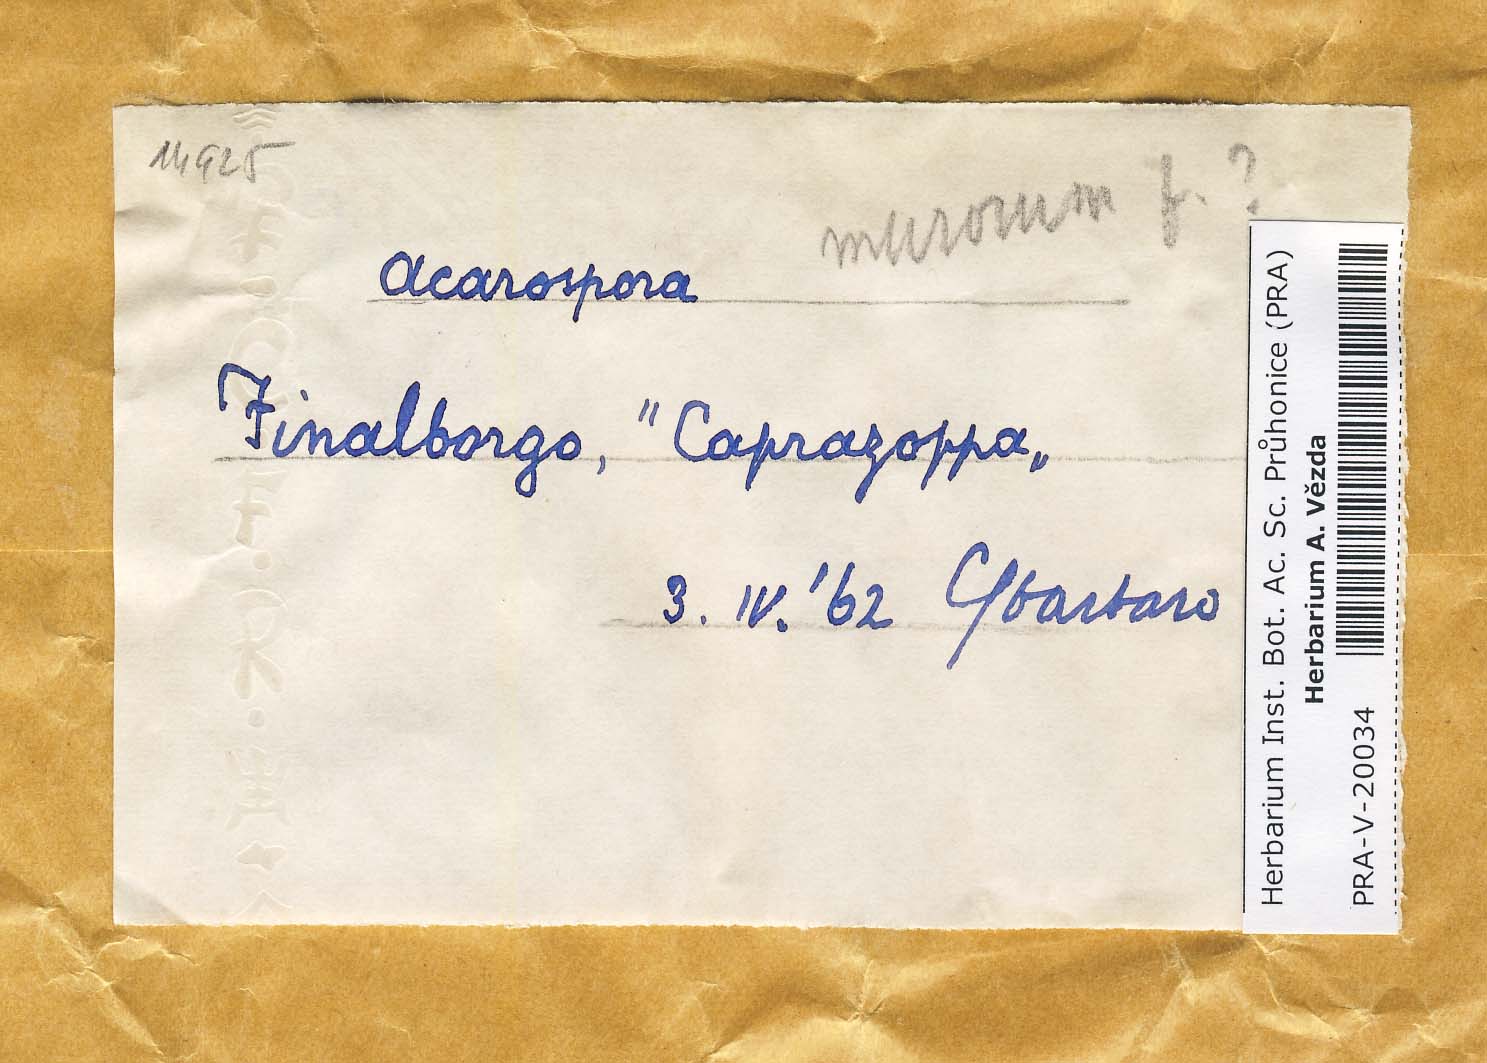 14925
murorum f. ?
Acarospora
Finalborgo, "Caprazoppa„
3. IV. '62 Sbarbaro
Herbarium Inst. Bot. Ac. Sc. Průhonice (PRA)
Herbarium A. Vězda
PRA-V-20034